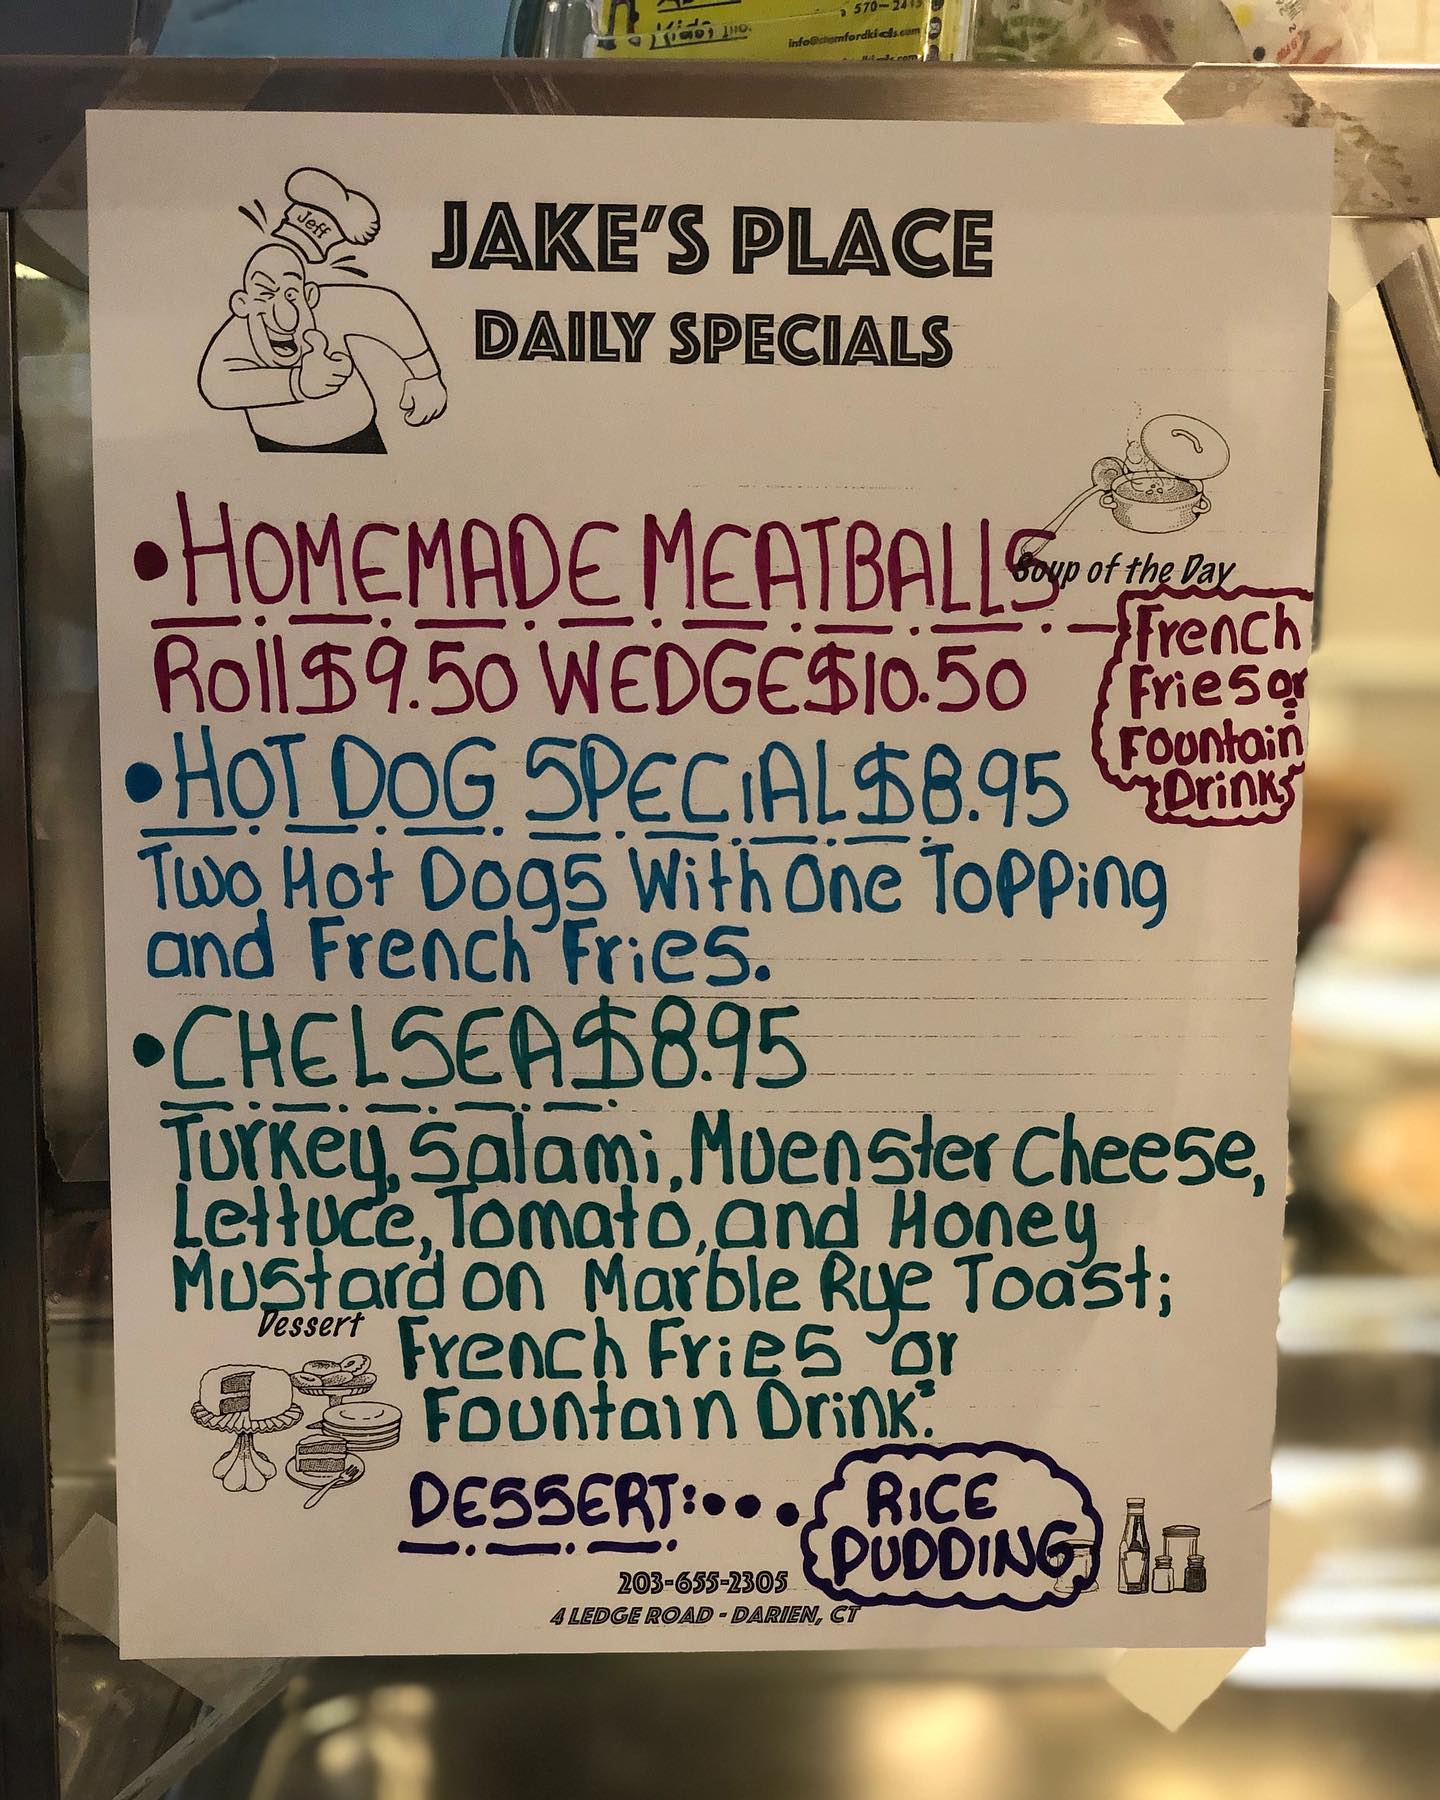 Kids Inc.
JAKE'S PLACE
DAILY SPECIALS
Jeff
Soup of the Day
• HOMEMADE MEATBALLS
Roll $9.50 WEDGE $10.50
French
Fries or
Fountain
Drink
• HOT DOG SPECIAL $8.95
Two Hot Dogs With One Topping
and French Fries.
• CHELSEA $8.95
Turkey, Salami, Muenster Cheese,
Lettuce, Tomato, and Honey
Mustard on Marble Rye Toast;
French Fries or
Fountain Drink.
Dessert
DESSERT:•••
RICE
PUDDING
203-655-2305
4 LEDGE ROAD - DARIEN, CT